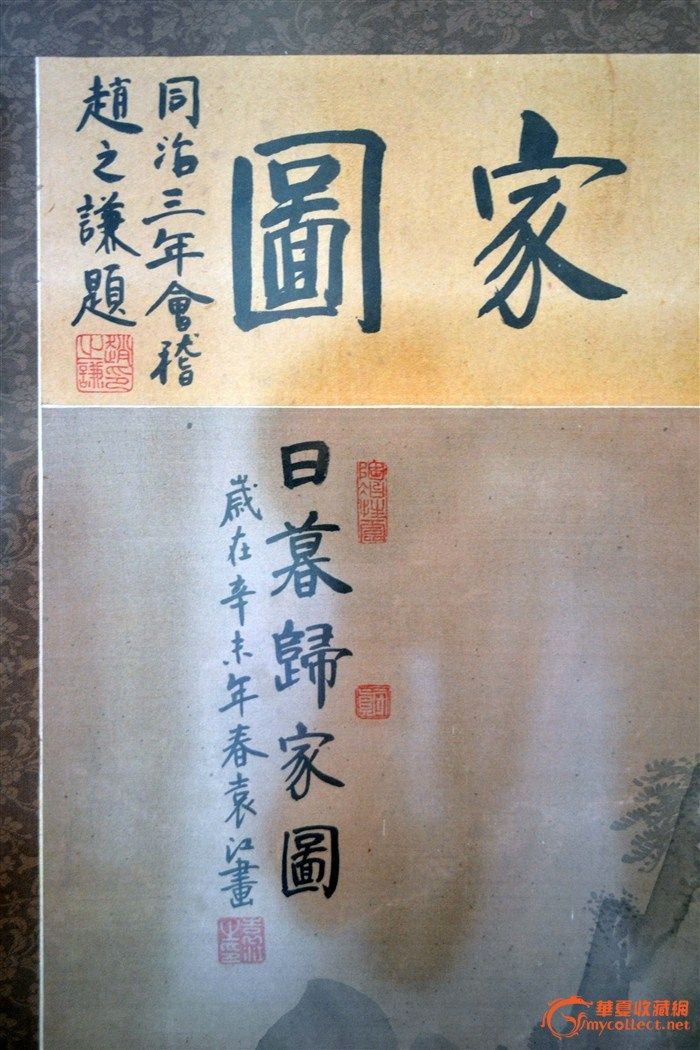 家圖
同治三年會稽
趙之謙題
趙之謙印
日暮歸家圖
歲在辛未年春袁江畫
袁江之印
華夏收藏網
mycollect.net